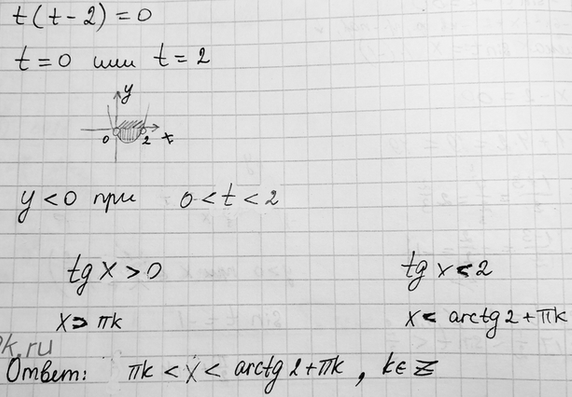 t(t-2)=0
t=0 или t=2
y
0 2 t
y<0 при 0<t<2
tg x>0 tg x<2
x>πk x< arctg2+πk
Ответ: πk<x< arctg2+πk, k∈Z